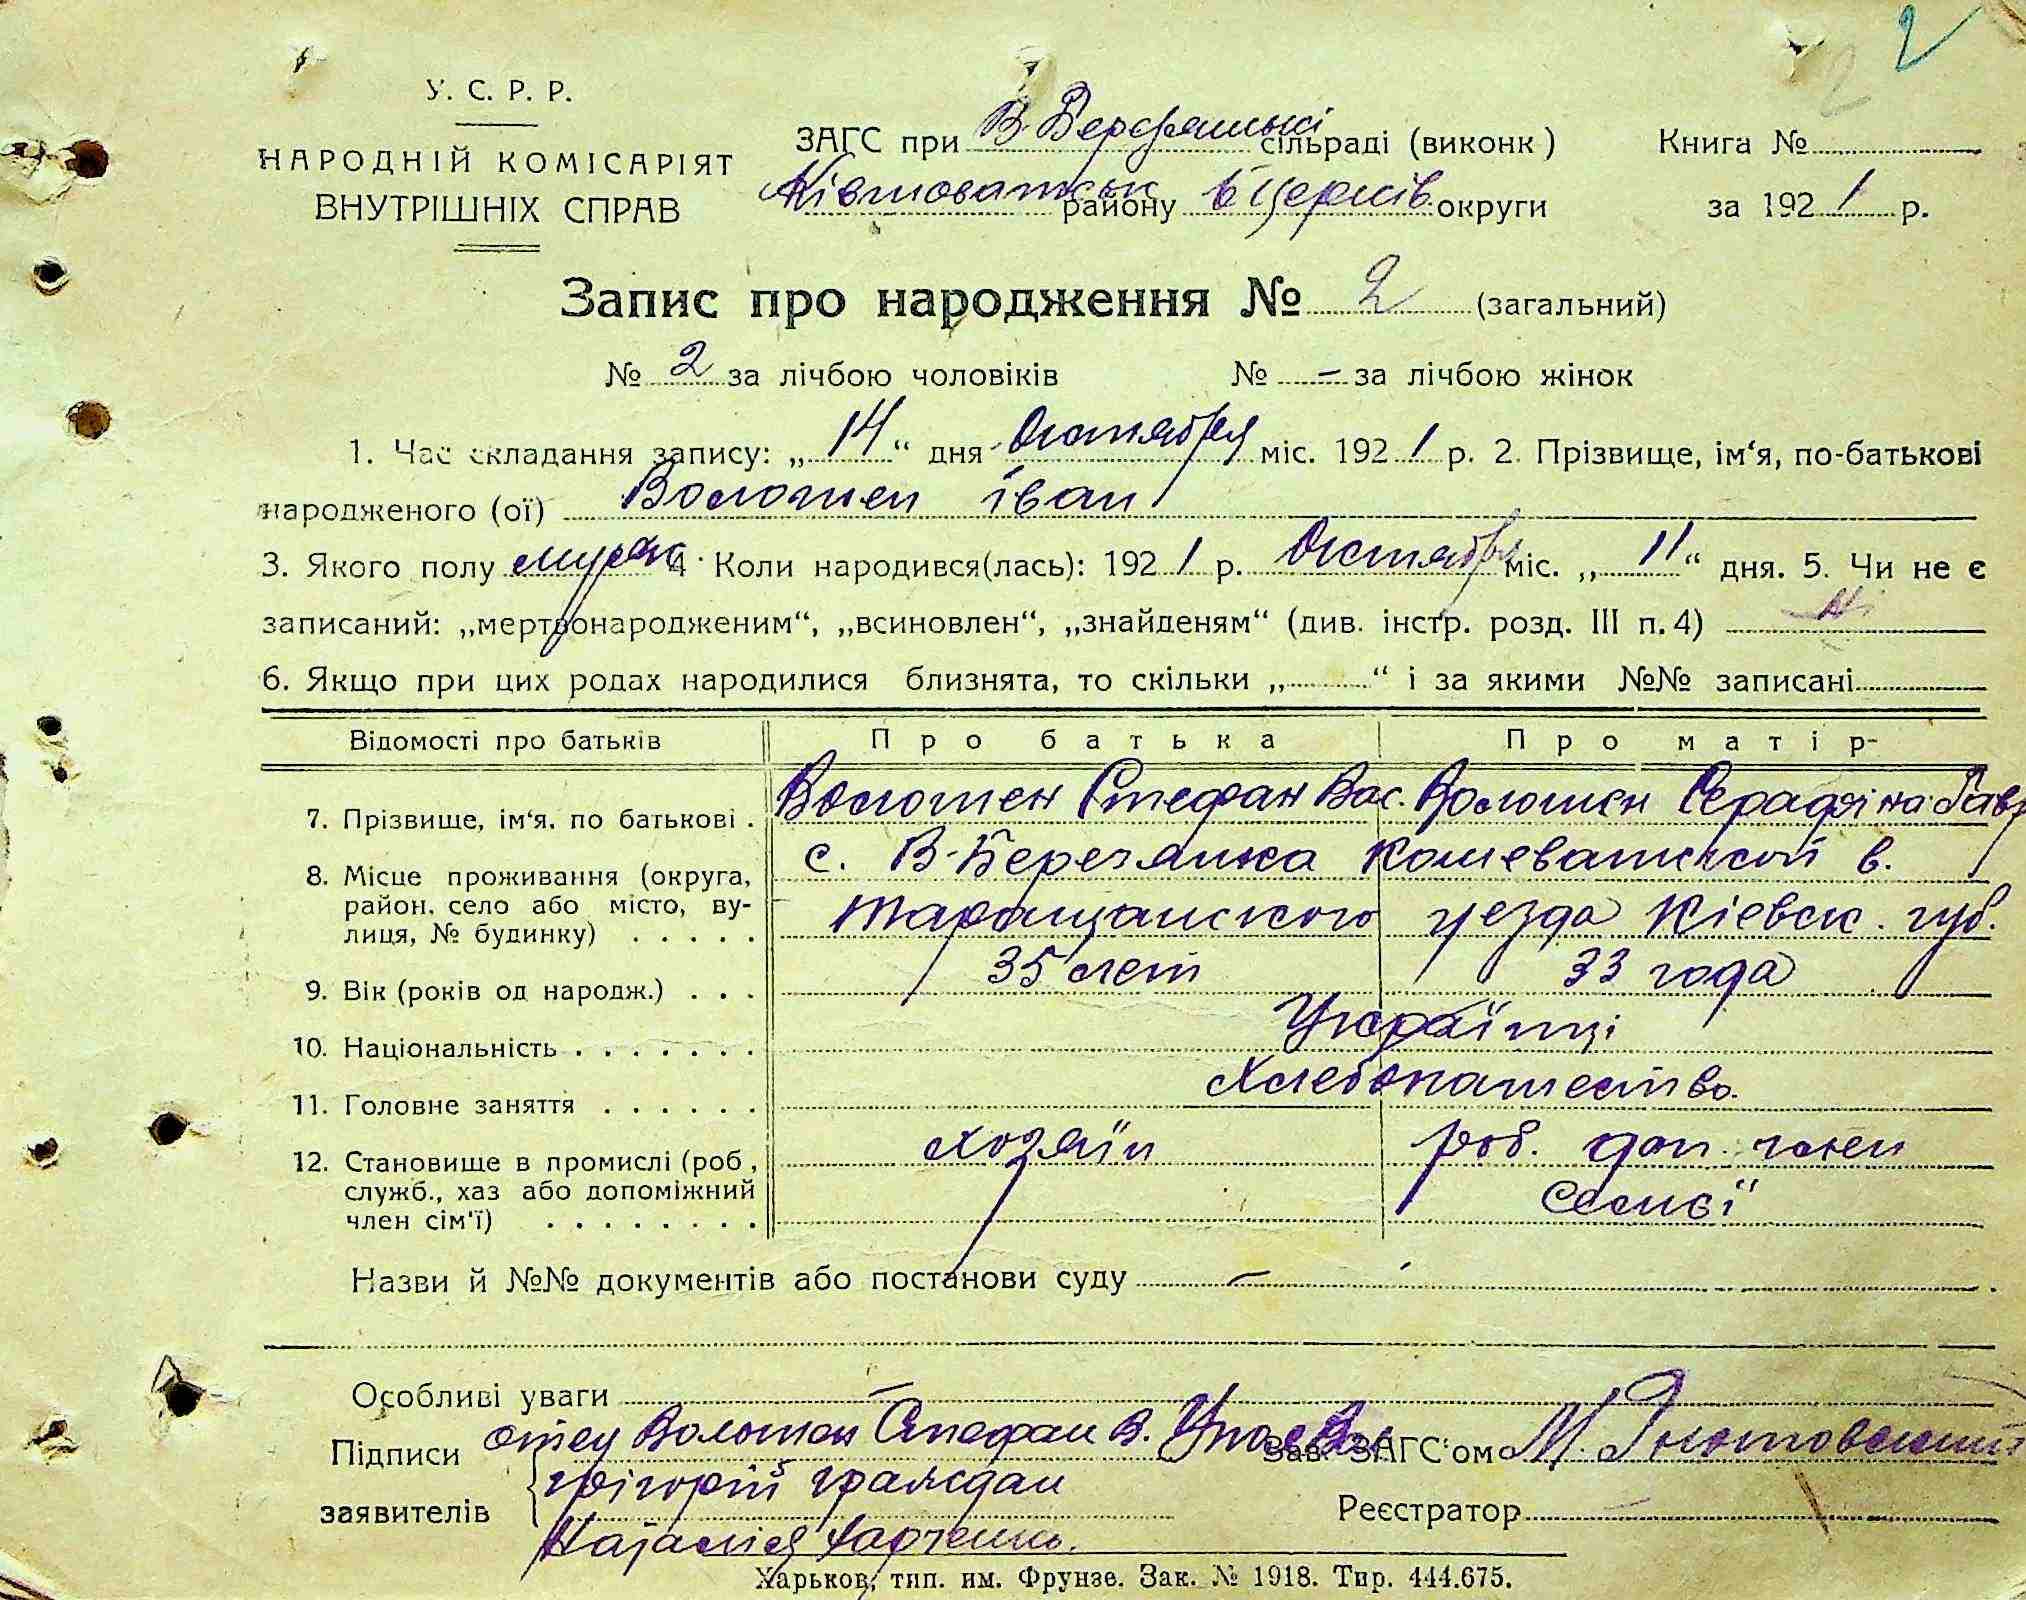 2
У. С. Р. Р.
НАРОДНІЙ КОМІСАРІЯТ
ВНУТРІШНІХ СПРАВ
ЗАГС при В. Березянські сільраді (виконк)
Ківшоватськ району Б Церків округи
Книга №
за 1921 р.
Запис про народження № 2 (загальний)
№ 2 за лічбою чоловіків № - за лічбою жінок
1. Час складання запису: „14“ дня Октября міс. 1921 р. 2. Прізвище, ім‘я, по-батькові
народженого (ої) Волошен Іван
3. Якого полу мужск 4 Коли народився(лась): 1921 р. Октября міс. „11“ дня. 5. Чи не є
записаний: „мертвонародженим“, „всиновлен“, „знайденям“ (див. інстр. розд. III п. 4) Ні
6. Якщо при цих родах народилися близнята, то скільки „ “ і за якими №№ записані
Відомості про батьків Про батька Про матір-
7. Прізвище, ім‘я, по батькові . Волошен Стефан Вас. Волошен Серафіна Гавр
8. Місце проживання (округа, район, село або місто, вулиця, № будинку) . . . . .
с. В-Березянка Кошеватской в.
таращанского уезда Кіевск. губ.
9. Вік (років од народж.) . . . 35 лет 33 года
10. Національність . . . . . . . Українці
11. Головне заняття . . . . . . Хлебопашество.
12. Становище в промислі (роб., служб., хаз або допоміжний член сім‘ї) . . . . . . . .
хозяїн роб. доп. член
семєї
Назви й №№ документів або постанови суду -
Особливі уваги -
Підписи отец Волошен Стефан В. Зав. ЗАГС‘ом М.
заявителів грігорій граждан Реєстратор
Наталія Харченко.
Харьков, тип. им. Фрунзе. Зак. № 1918. Тир. 444.675.